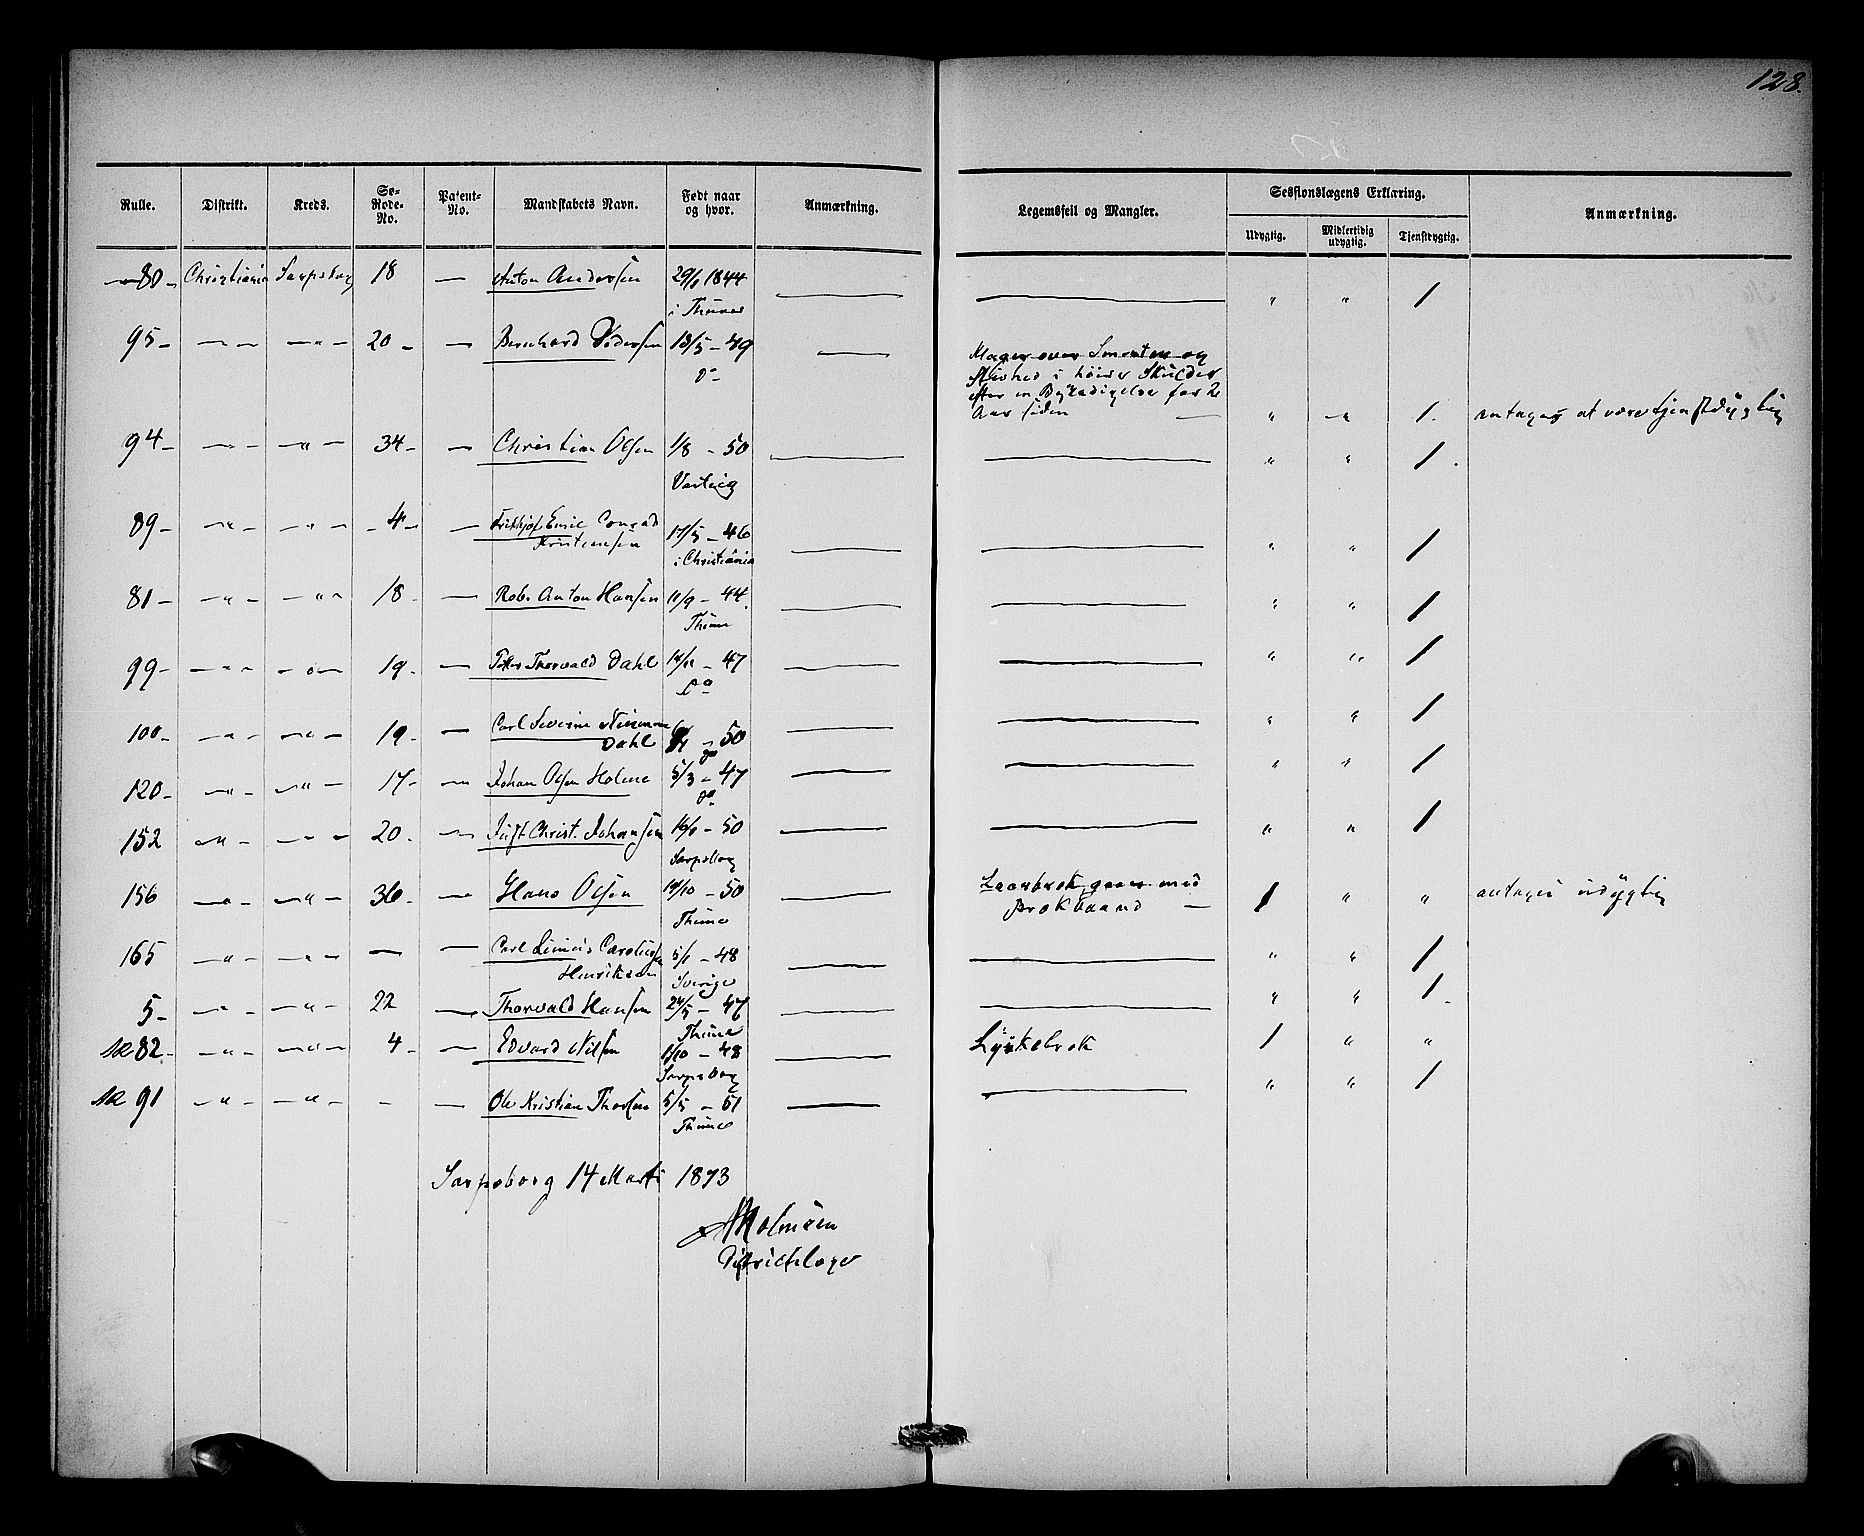 128.
Rulle. Distrikt. Kreds. So-Rode-No. Patent-No. Mandskabets Navn. Født naar og hvor. Anmærkning. Legemsfeil og Mangler. Sessionslægens Erklæring. Anmærkning.
Udygtig. Midlertidig udygtig. Tjenstdygtig.
80 - Christiania Sarpsborg 18 — Anton Andersen 29/1 1844 — — " " /
i Thune
95 - — " — — " — 20 - — Bernhard Pedersen 13/5 - 49 — Klager over Smerter og
do Stivhed i høire Skulder
efter en Beskadigelse for 2
Aar siden — " " / antages at være tjenstdygtig
94 - — " — — " — 34 - — Christian Olsen 1/8 - 50 — — " " /
Varteig
89 - — " — — " — - 4 - — Frithjof Emil Conrad 17/5 - 46 — — " " /
Kristensen i Christiania
81 - — " — — " — 18 - — Rob. Anton Hansen 11/9 - 44 — — " " /
Thune
99 - — " — — " — 19 - — Peter Thorvald Dahl 14/11 - 47 — — " " /
do
100 - — " — — " — 19 - — Carl Severin — - 50 — — " " /
Dahl do
120 - — " — — " — 17 - — Johan Olsen Holme 5/3 - 47 — — " " /
do
152 — " — — " — 20 - — Just Christ. Johansen 16/1 - 50 — — " " /
Sarpsborg
156 — " — — " — 36 - — Hans Olsen 14/10 - 50 — Laarbrok gaaer med / " " antages udygtig
Thune Brokbaand —
165 — " — — " — — — Carl Linus Carolius 5/1 - 48 — — " " /
Henriksen Sverige
5 - — " — — " — 22 — Thorvald Hansen 24/5 - 47 — — " " /
Thune
82 - — " — — " — 4 - — Edvard Nilsen 1/10 - 48 — Lyskebrok / " "
Sarpsborg
91 — " — — " — - — Ole Kristian Thorsen 5/5 - 51 — — " " /
Thune
Sarpsborg 14 Marts 1873
Holmsen
Districtslæge